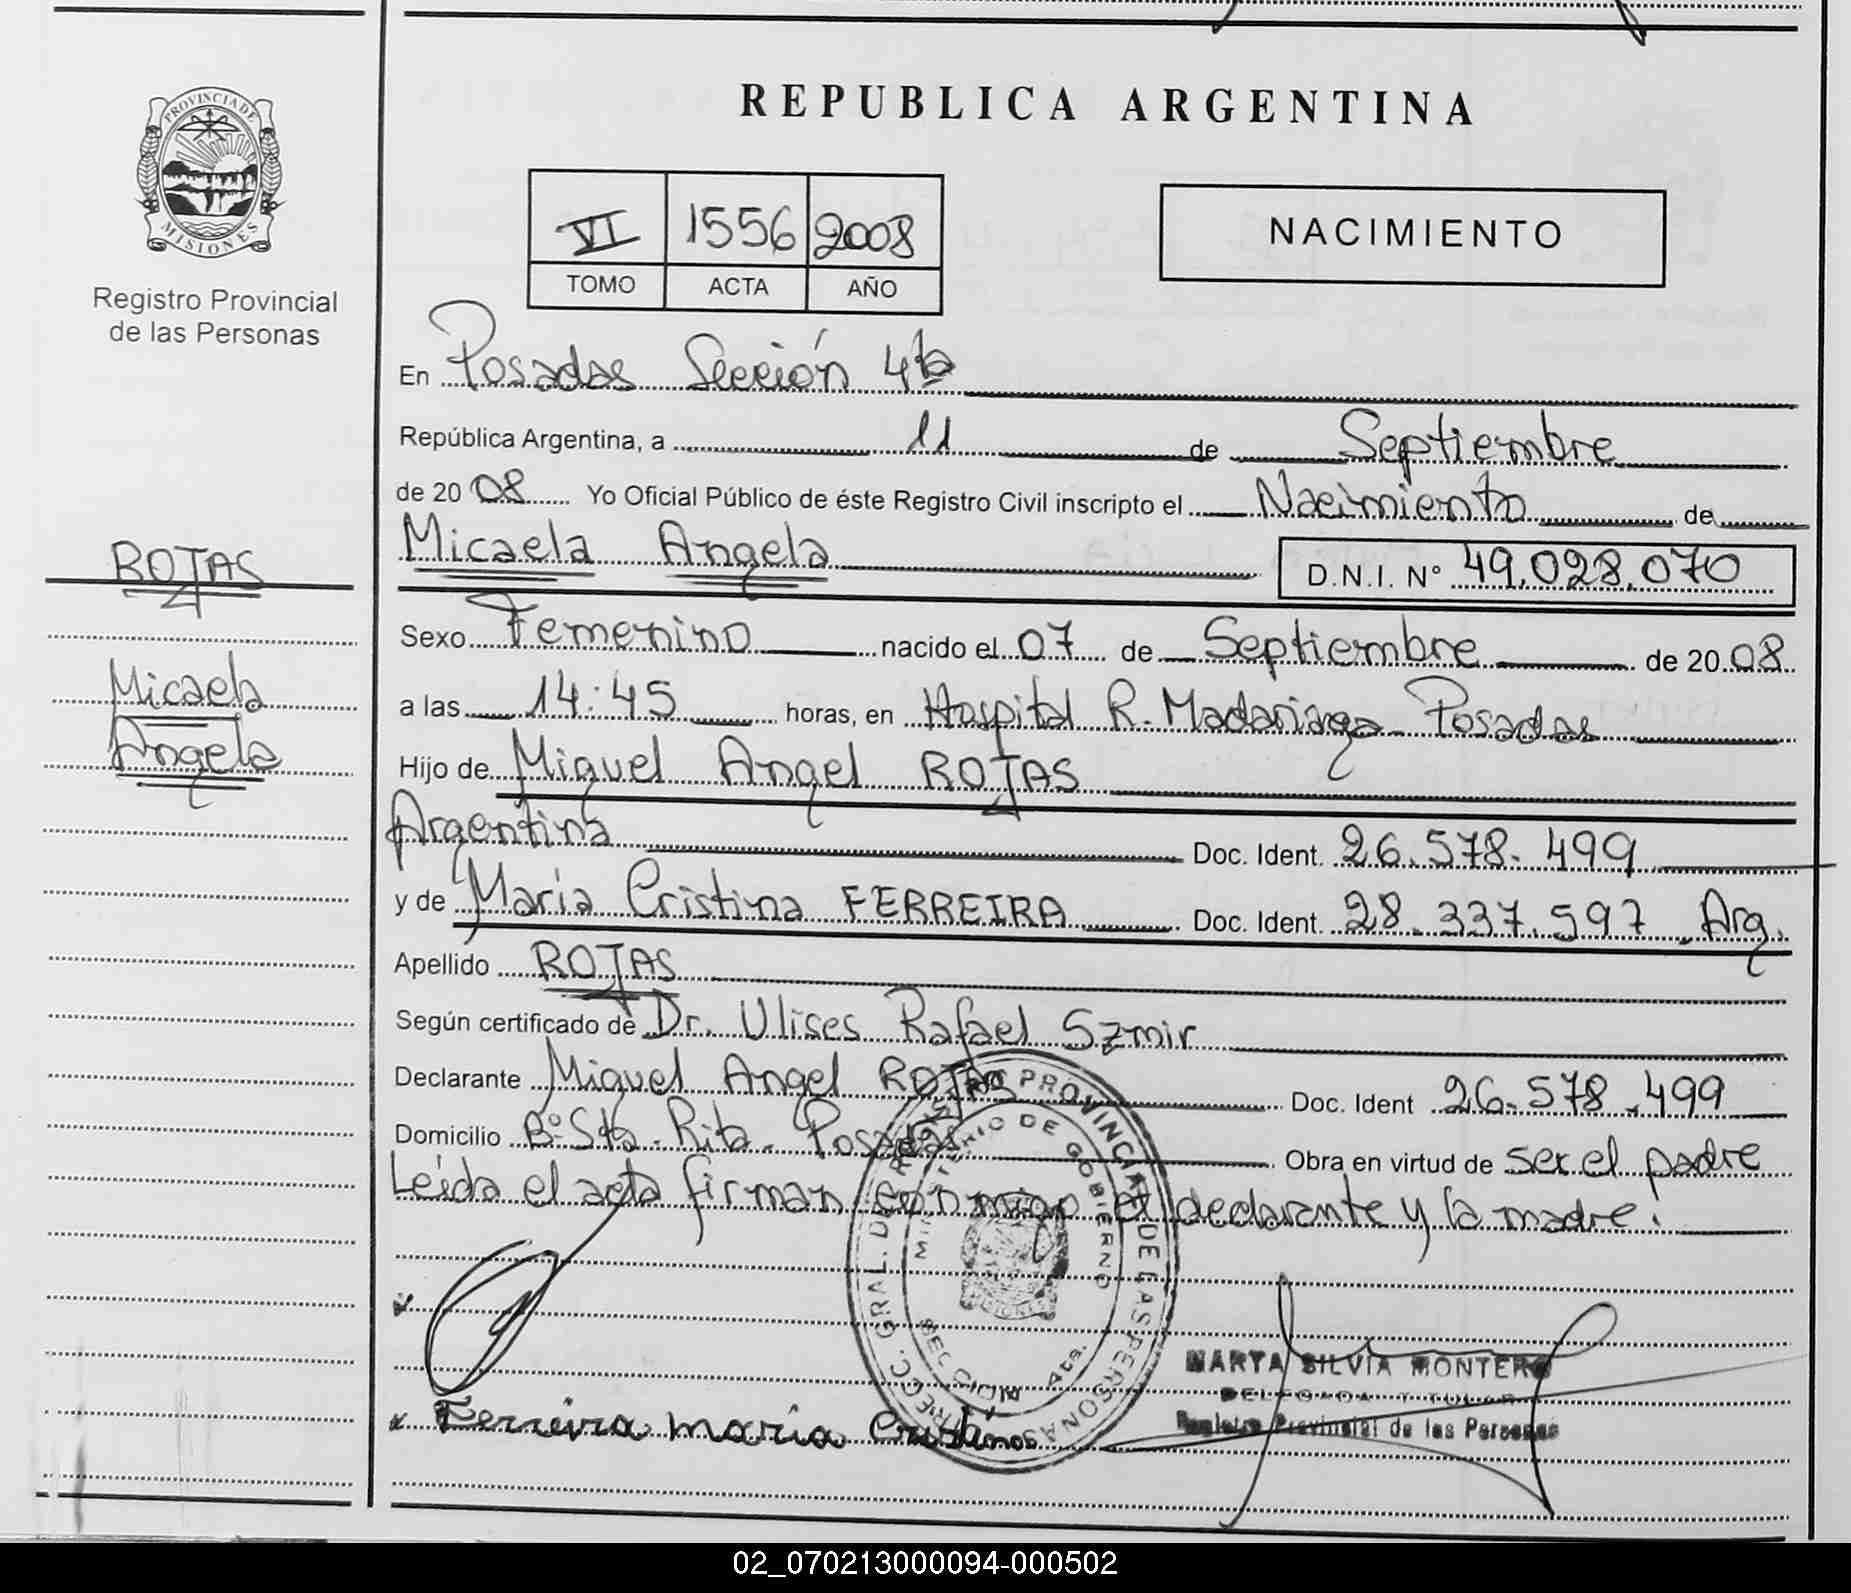 PROVINCIA DE
MISIONES
Registro Provincial
de las Personas
ROJAS
Micaela
Angela
REPUBLICA ARGENTINA
VI 1556 2008
TOMO ACTA AÑO
NACIMIENTO
En Posadas Sección 4ta
República Argentina, a 11 de Septiembre
de 20 08 Yo Oficial Público de éste Registro Civil inscripto el Nacimiento de
Micaela Angela D.N.I. N° 49.028.070
Sexo Femenino nacido el 07 de Septiembre de 20 08
a las 14:45 horas, en Hospital R. Madariaga - Posadas
Hijo de Miguel Angel ROJAS
Argentina Doc. Ident. 26.578.499
y de Maria Cristina FERREIRA Doc. Ident. 28.337.597 Arg.
Apellido ROJAS
Según certificado de Dr. Ulises Rafael Szmir
Declarante Miguel Angel ROJAS Doc. Ident 26.578.499
Domicilio B° Sta. Rita - Posadas Obra en virtud de ser el padre
Leida el acta firman conmigo el declarante y la madre.
DIRECC. GRAL. DE REGISTRO PROVINCIAL DE LAS PERSONAS
MINISTERIO DE GOBIERNO
SECCION 4ta.
MARTA SILVIA MONTERO
DELEGADA TITULAR
Registro Provincial de las Personas
Ferreira maria Cristina
02_070213000094-000502